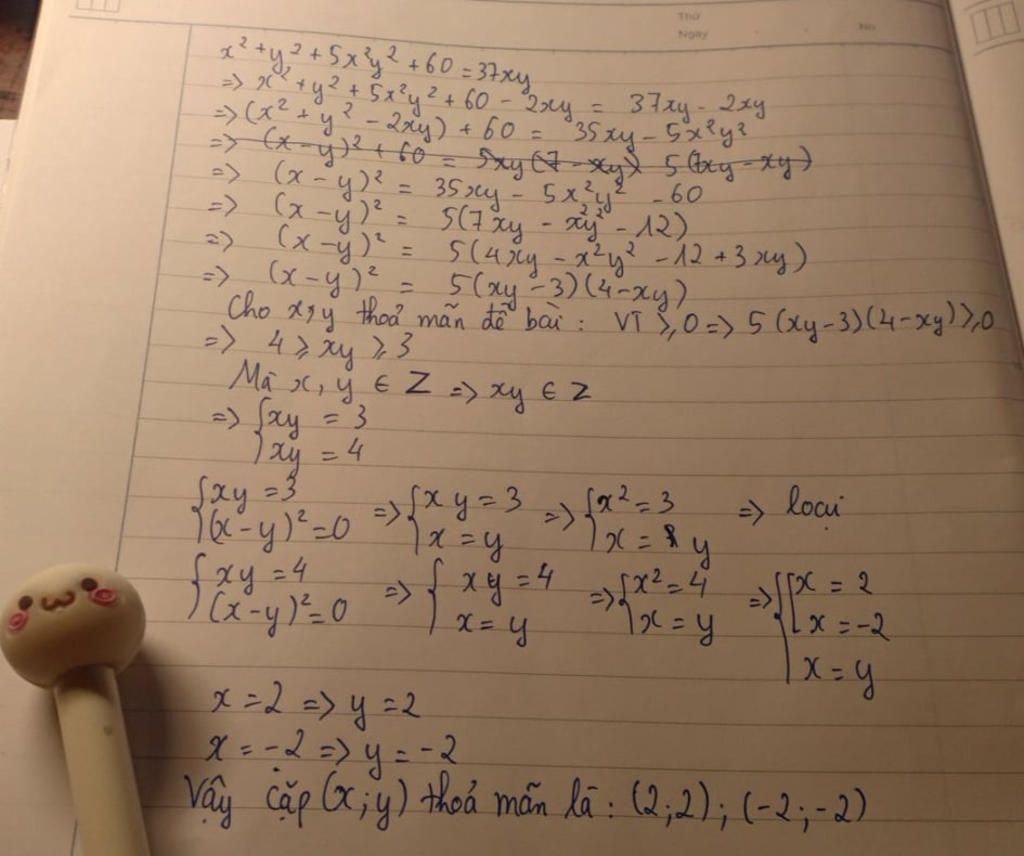 Thứ
Ngày
No
x² + y² + 5x²y² + 60 = 37xy
=> x² + y² + 5x²y² + 60 - 2xy = 37xy - 2xy
=> (x² + y² - 2xy) + 60 = 35xy - 5x²y²
=> (x - y)² + 60 = 5xy(7 - xy) 5(7xy - xy)
=> (x - y)² = 35xy - 5x²y² - 60
=> (x - y)² = 5(7xy - x²y² - 12)
=> (x - y)² = 5(4xy - x²y² - 12 + 3xy)
=> (x - y)² = 5(xy - 3)(4 - xy)
Cho x, y thoả mãn đề bài : Vì ⩾ 0 => 5(xy - 3)(4 - xy) ⩾ 0
=> 4 ⩾ xy ⩾ 3
Mà x, y ∈ Z => xy ∈ Z
=> { xy = 3
xy = 4
{ xy = 3 => { xy = 3 => { x² = 3 => loại
(x - y)² = 0 x = y x = y
{ xy = 4 => { xy = 4 => { x² = 4 => { [ x = 2
(x - y)² = 0 x = y x = y x = -2
x = y
x = 2 => y = 2
x = -2 => y = -2
Vậy cặp (x; y) thoả mãn là : (2; 2) ; (-2; -2)